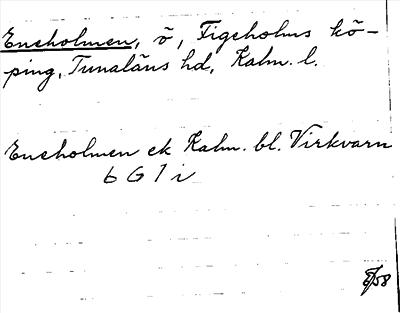 Eneholmen, ö, Figeholms kö-
ping, Tunaläns hd, Kalm. l.
Eneholmen ek Kalm. bl. Virkvarn
6 G 1 i